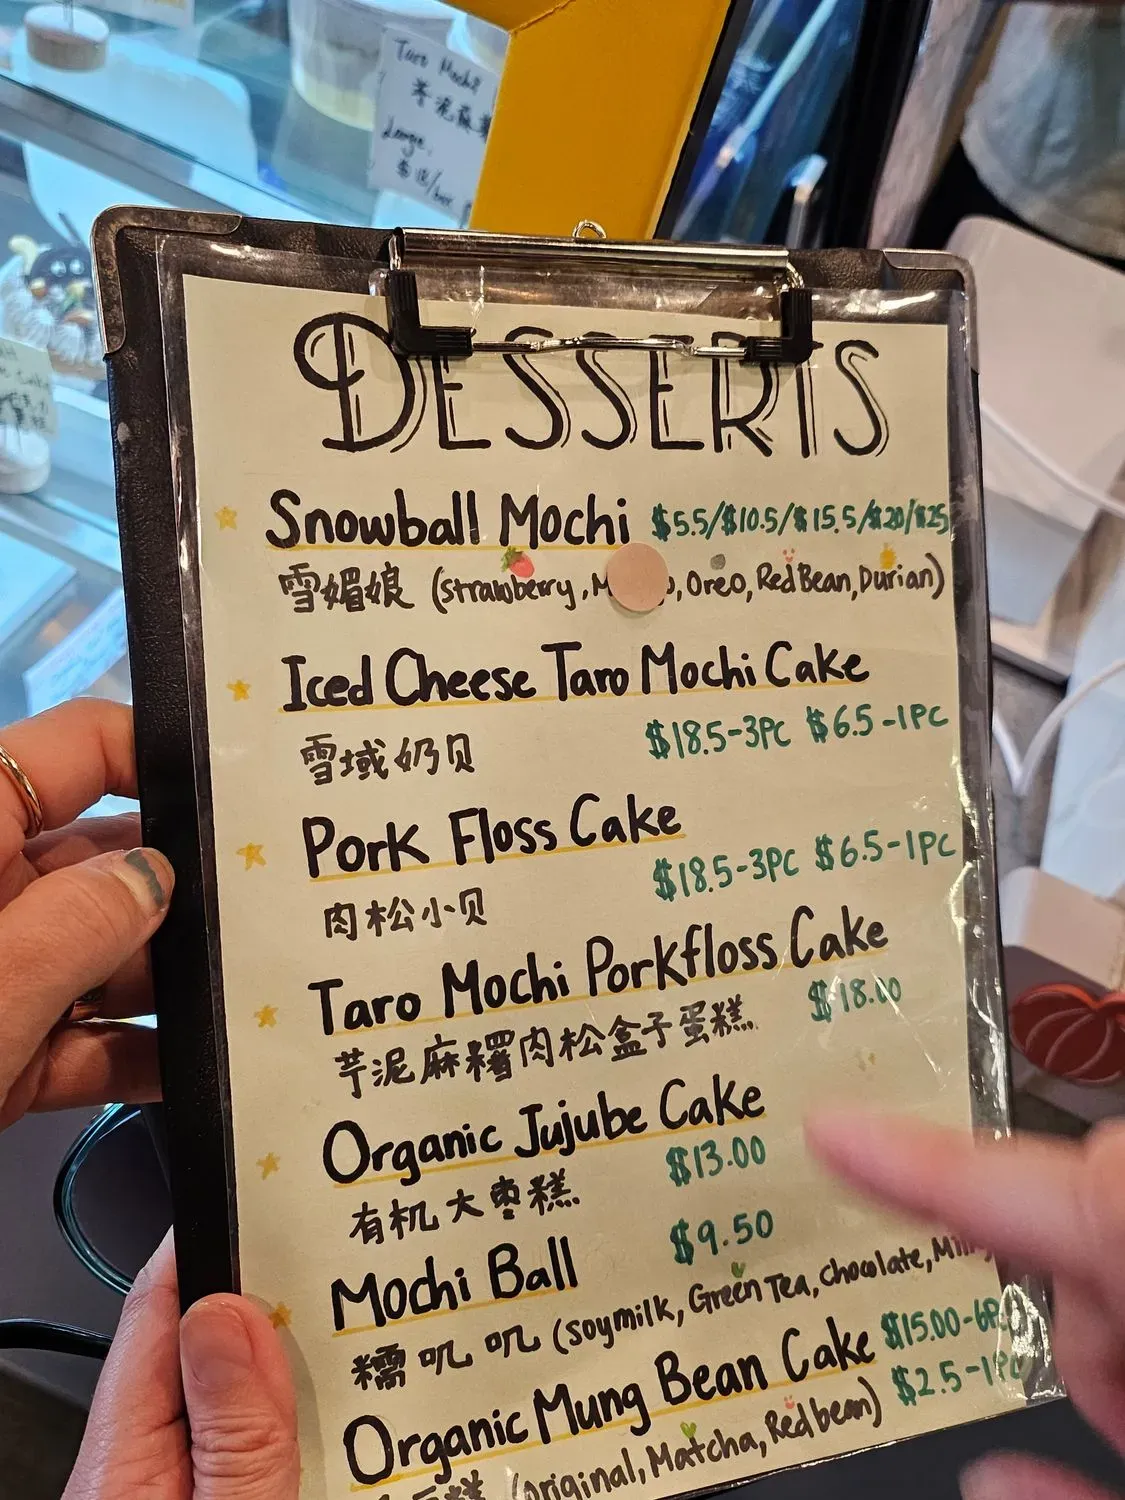 Taro Mochi
芋泥
Large.
DESSERTS
Snowball Mochi $5.5/$10.5/$15.5/$20/$25
雪媚娘 (Strawberry, , Oreo, Red Bean, Durian)
Iced Cheese Taro Mochi Cake
雪域奶贝 $18.5-3PC $6.5-1PC
Pork Floss Cake
肉松小贝 $18.5-3PC $6.5-1PC
Taro Mochi Porkfloss Cake
芋泥麻糬肉松盒子蛋糕 $18.00
Organic Jujube Cake
有机大枣糕 $13.00
Mochi Ball $9.50
糯叽叽 (Soymilk, Green Tea, Chocolate,
Organic Mung Bean Cake $15.00-6PC
(Original, Matcha, Redbean) $2.5-1PC